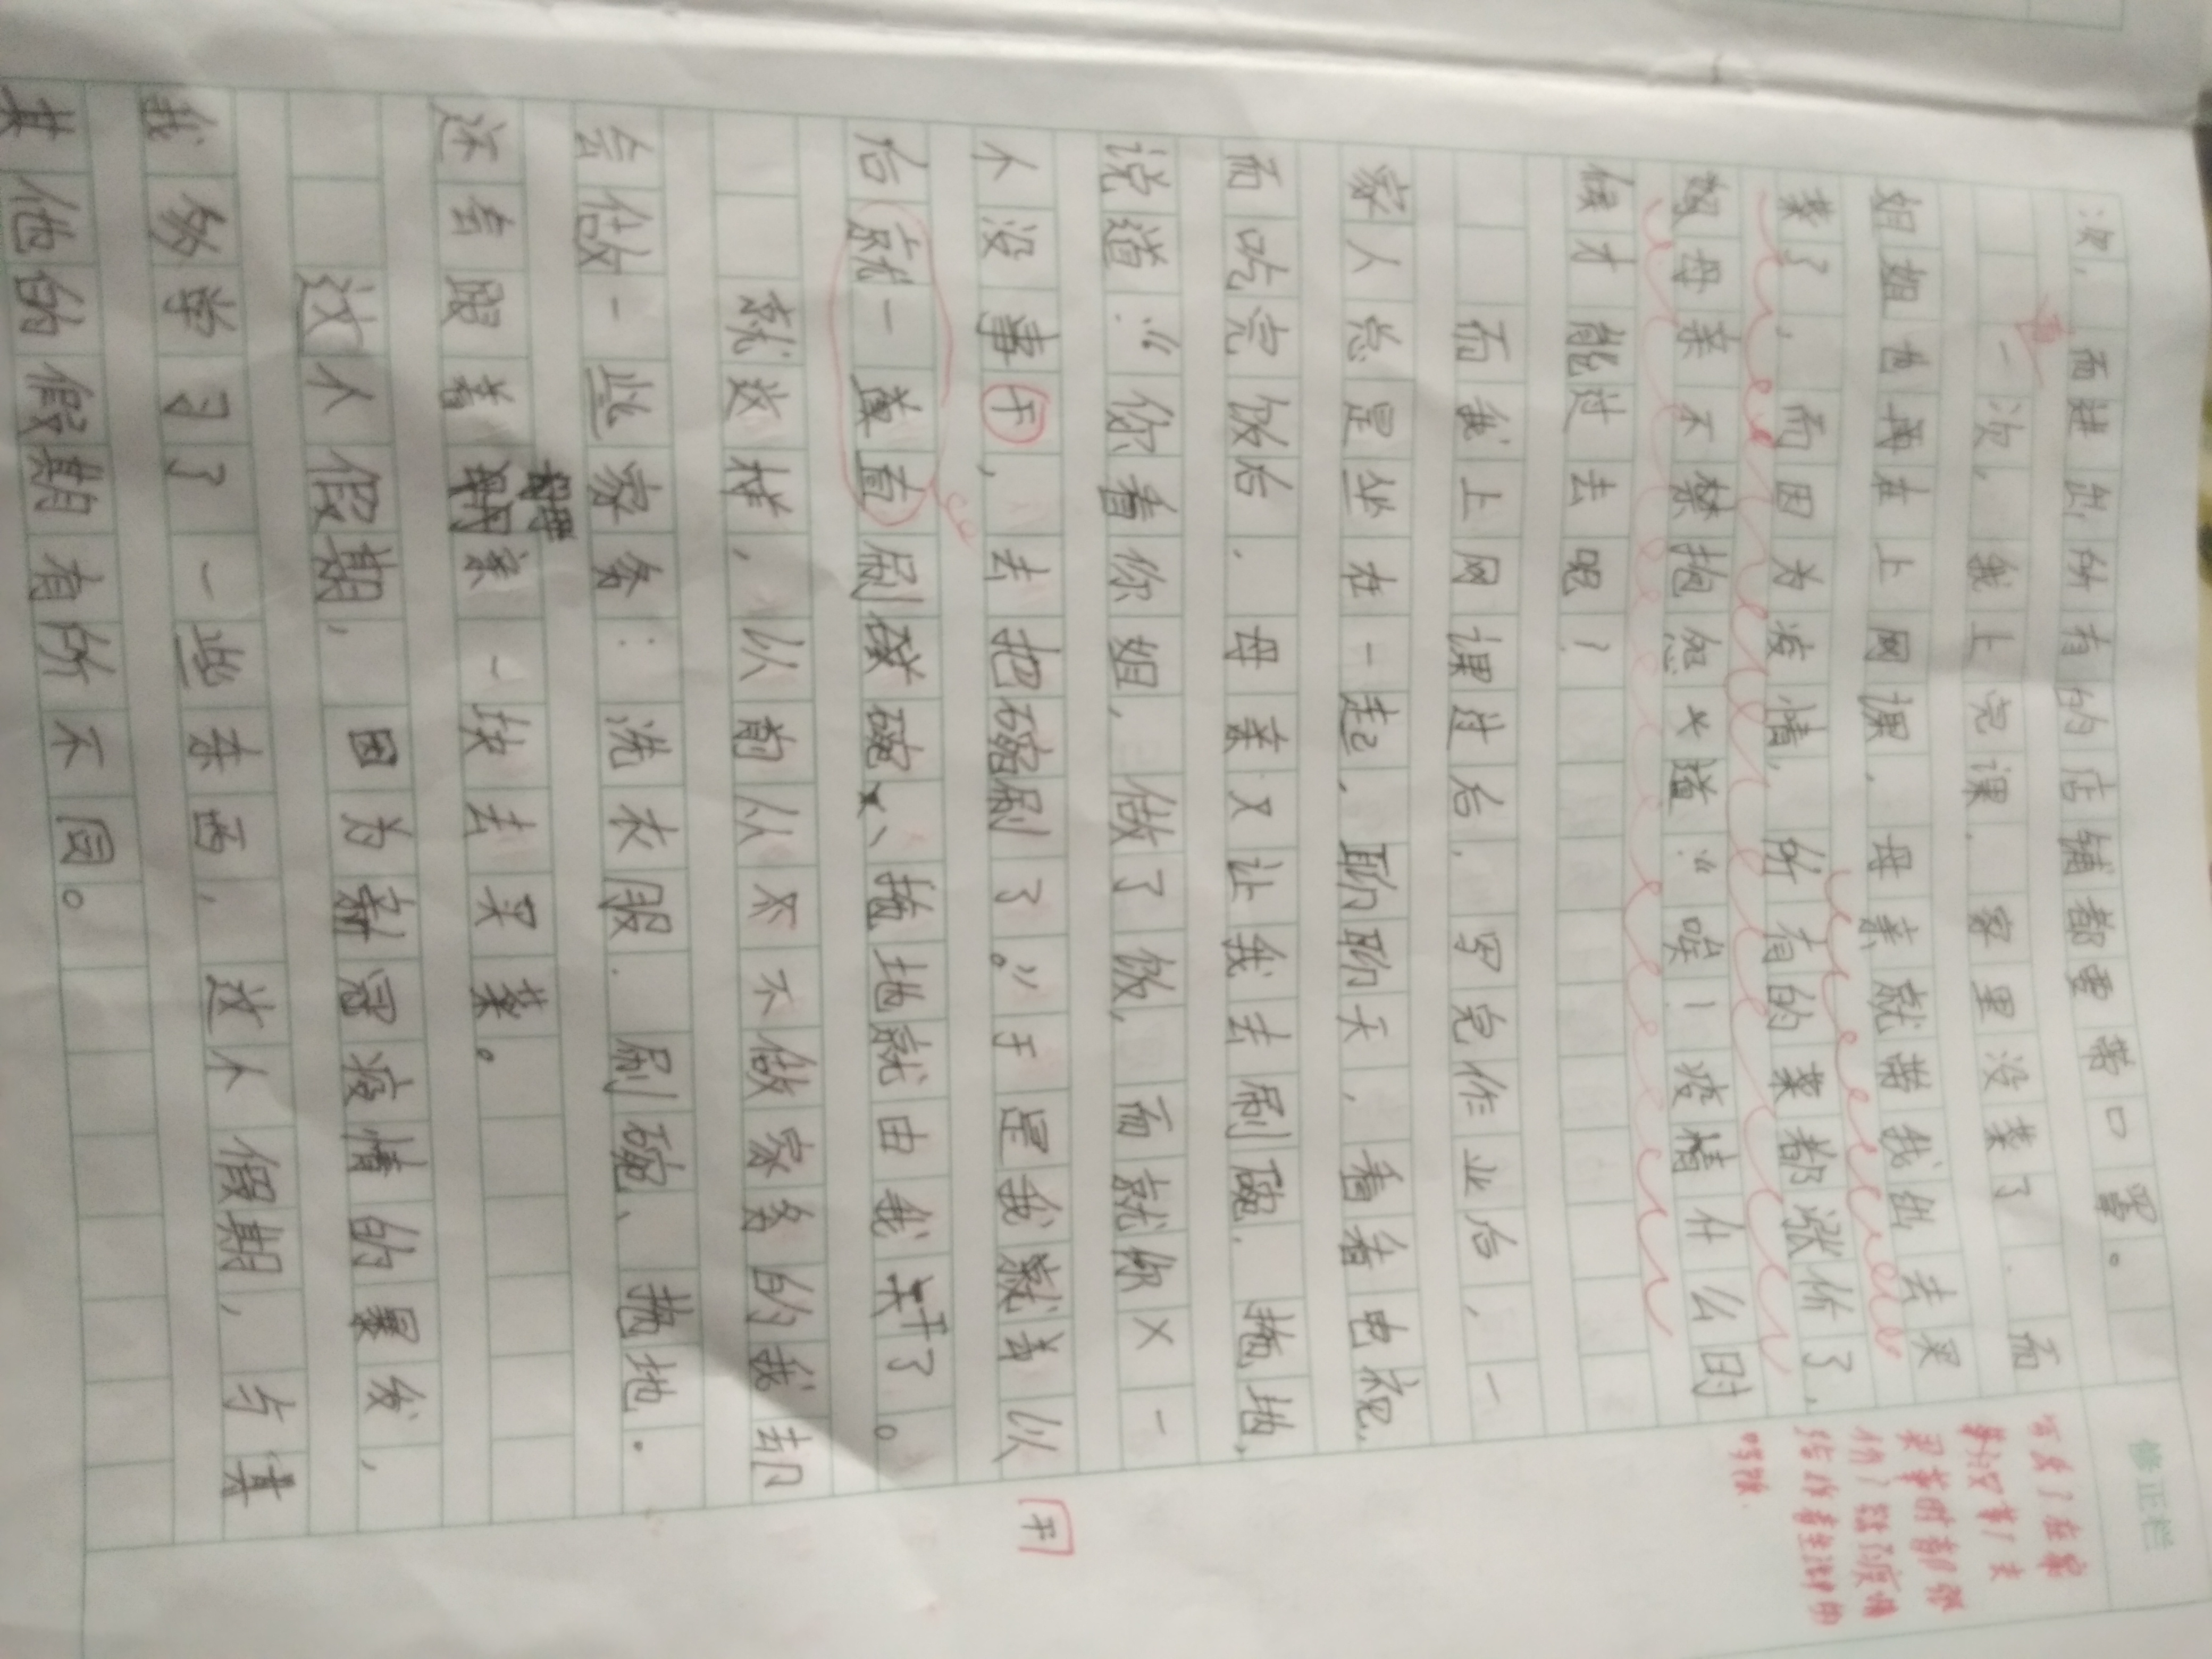 次，而进出所有的店铺都要带口罩。
一次，我上完课，家里没菜了，而
姐姐也再在上网课，母亲就带我出去买
菜了，而因为疫情，所有的菜都涨价了，
母亲不禁抱怨道：“唉！疫情什么时
候才能过去呢？
而我上网课过后，写完作业后，一
家人总是坐在一起，聊聊天，看看电视，
而吃完饭后，母亲又让我去刷碗，拖地，
说道：“你看你姐，做了饭，而就你×一
个没事干，去把碗刷了。”于是我就去以
后就一首直刷碗、拖地就由我了。
就这样，以前从不做家务的我却
会做一些家务：洗衣服，刷碗、拖地。
还会跟着母亲一块去买菜。
这个假期，因为新冠疫情的暴发，
我多学习了一些东西，这个假期，与其
其他的假期有所不同。
修正栏
再
干